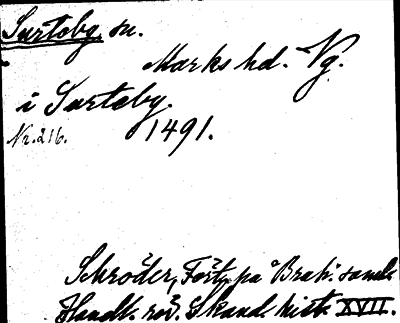 Surteby, sn.
Marks hd. Vg.
i Surteby.
Nr. 216. 1491.
Schröder, Fört. på Brah. saml.
Handl. rör. Skand. hist. XVII.